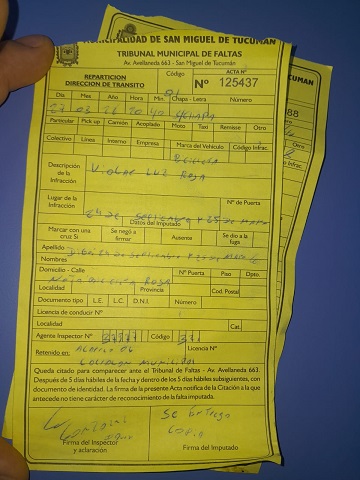 MUNICIPALIDAD DE SAN MIGUEL DE TUCUMAN
TRIBUNAL MUNICIPAL DE FALTAS
Av. Avellaneda 663 - San Miguel de Tucumán
REPARTICION
DIRECCION DE TRANSITO
Código
ACTA Nº
Nº 125437
Día Mes Año Hora Min. Chapa - Letra Número
27 03 20 40
Particular Pick up Camión Acoplado Moto Taxi Remisse Otro
Colectivo Línea Interno Empresa Marca del Vehículo Código Infrac.
Descripción de la Infracción
Violar Luz Roja
Lugar de la Infracción
Nº de Puerta
24 de Septiembre y 25 de Mayo
Datos del Imputado
Marcar con una cruz Si Se negó a firmar Ausente Se dio a la fuga
Apellido
Nombres
Domicilio - Calle Nº Puerta Piso Dpto.
Localidad Provincia Cod. Postal
Documento tipo L.E. L.C. D.N.I. Número
Licencia de conducir Nº
Localidad Cat.
Agente Inspector Nº Código
Retenido en: Licencia Nº
Queda citado para comparecer ante el Tribunal de Faltas - Av. Avellaneda 663.
Después de 5 días hábiles de la fecha y dentro de los 5 días hábiles subsiguientes, con
documento de identidad. La firma de la presente Acta notifica de la Citación a la que
antecede no tiene carácter de reconocimiento de la falta imputada.
Se Entrega
Copia
Firma del Inspector
y aclaración
Firma del Imputado